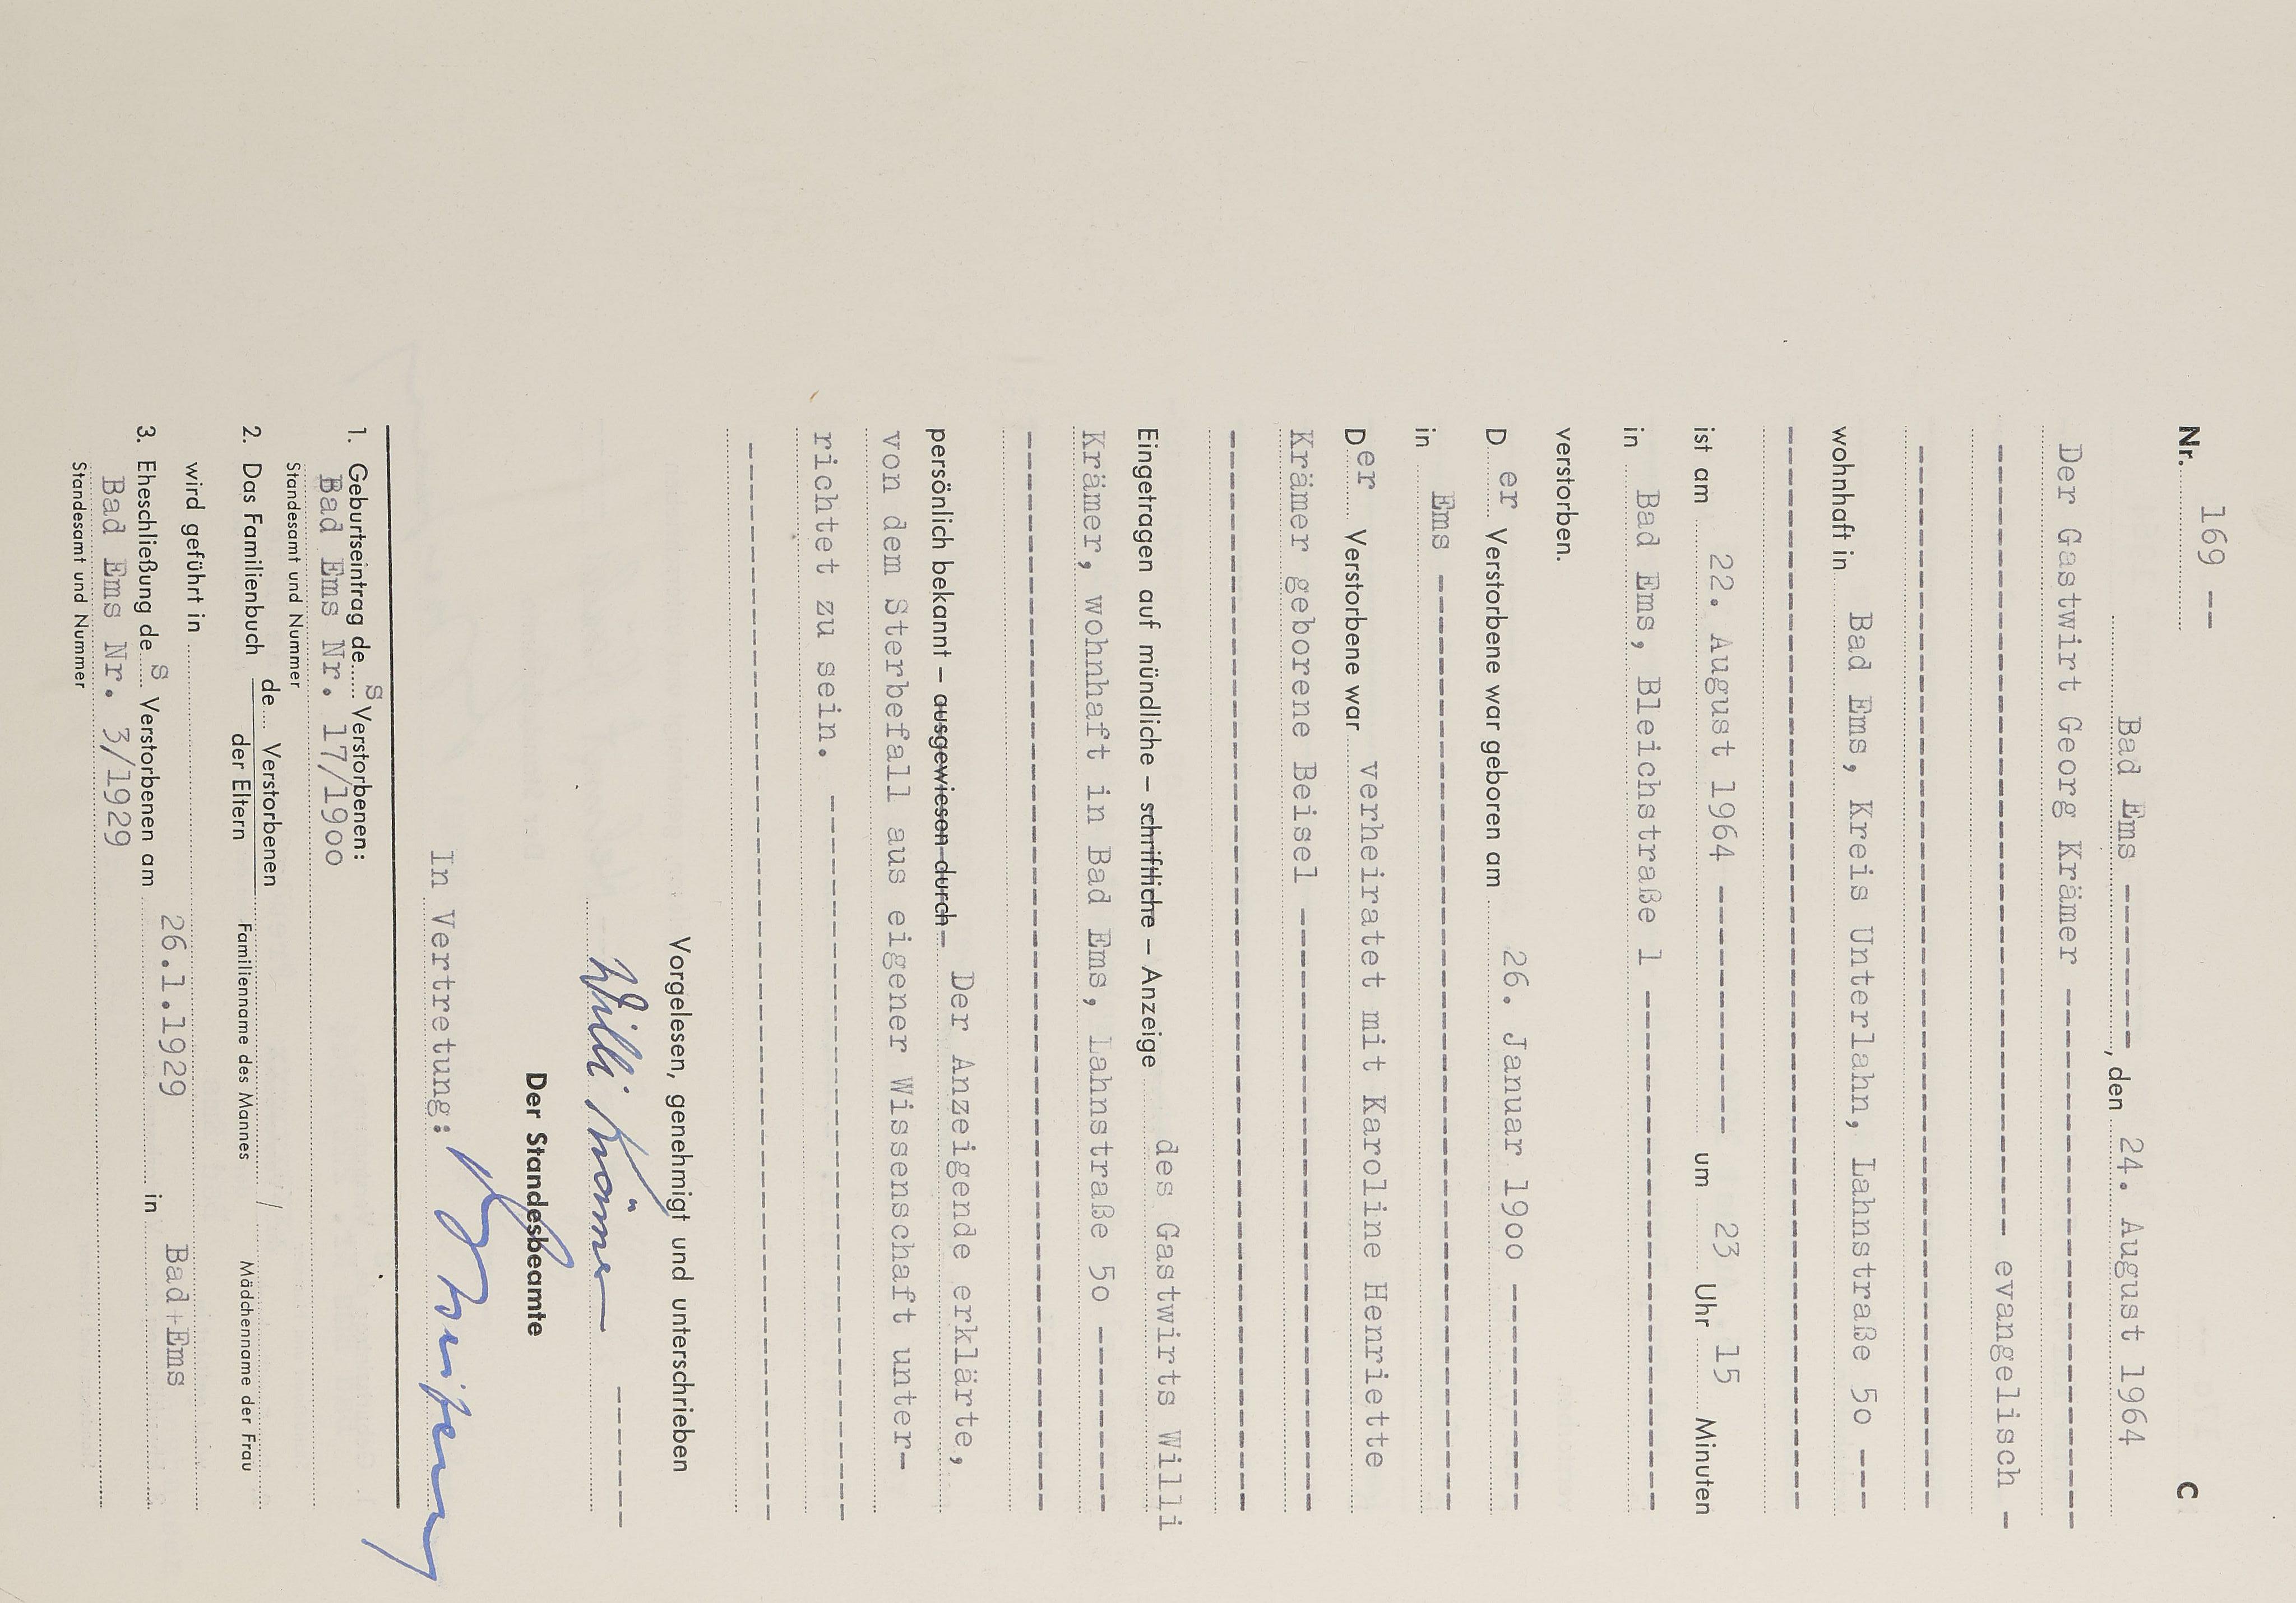 Nr. 169 -- C
Bad Ems -------, den 24. August 1964
Der Gastwirt Georg Krämer
evangelisch -
wohnhaft in Bad Ems, Kreis Unterlahn, Lahnstraße 5o ---
ist am 22. August 1964 ---------- um 23 Uhr 15 Minuten
in Bad Ems, Bleichstraße 1
verstorben.
D er Verstorbene war geboren am 26. Januar 19oo
in Ems
Der Verstorbene war verheiratet mit Karoline Henriette
Krämer geborene Beisel
Eingetragen auf mündliche – schriftliche – Anzeige des Gastwirts Willi
Krämer, wohnhaft in Bad Ems, Lahnstraße 5o
persönlich bekannt – ausgewiesen durch – Der Anzeigende erklärte,
von dem Sterbefall aus eigener Wissenschaft unter-
richtet zu sein.
Vorgelesen, genehmigt und unterschrieben
Willi Krämer
Der Standesbeamte
In Vertretung:
1. Geburtseintrag des Verstorbenen:
Bad Ems Nr. 17/19oo
Standesamt und Nummer
2. Das Familienbuch de Verstorbenen
der Eltern
Familienname des Mannes / Mädchenname der Frau
wird geführt in
3. Eheschließung des Verstorbenen am 26.1.1929 in Bad+Ems
Bad Ems Nr. 3/1929
Standesamt und Nummer